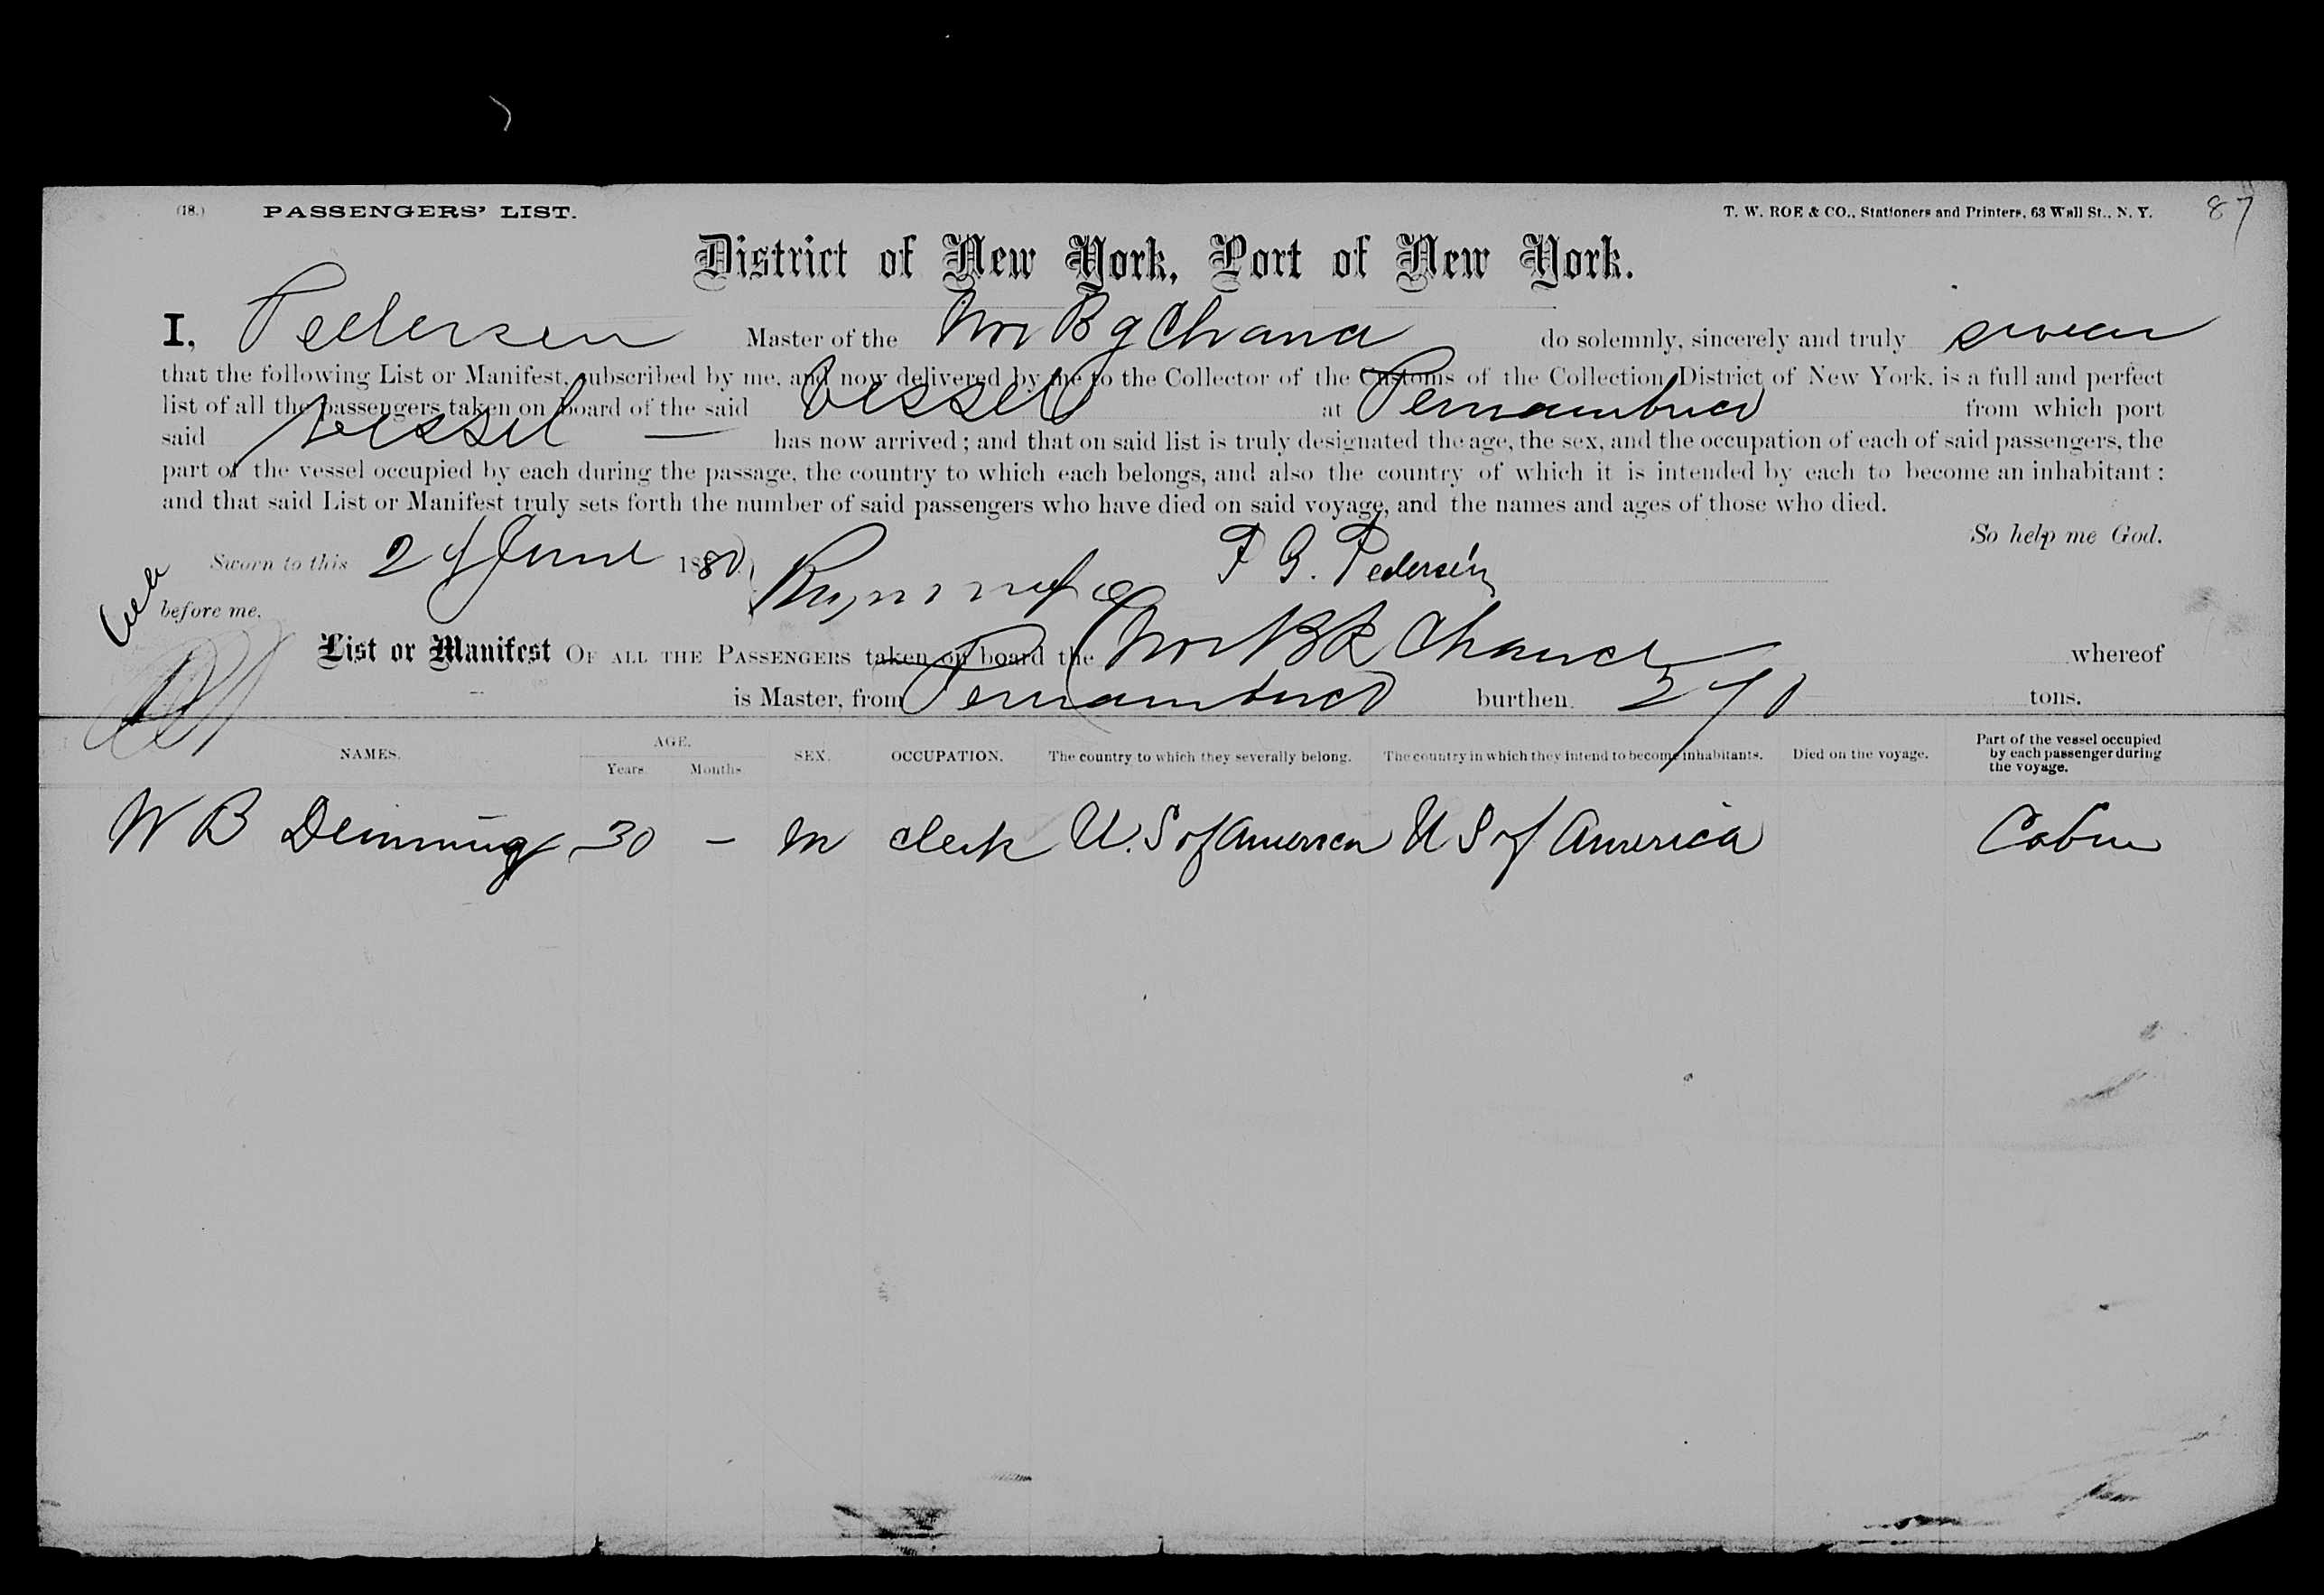 (18.) PASSENGERS' LIST. T. W. ROE & CO., Stationers and Printers, 63 Wall St., N. Y. 87
District of New York, Port of New York.
I, Pedersen Master of the Nor Bg Chana do solemnly, sincerely and truly swear
that the following List or Manifest, subscribed by me, and now delivered by me to the Collector of the Customs of the Collection District of New York, is a full and perfect
list of all the passengers taken on board of the said vessel at Pernambuco from which port
said vessel — has now arrived; and that on said list is truly designated the age, the sex, and the occupation of each of said passengers, the
part of the vessel occupied by each during the passage, the country to which each belongs, and also the country of which it is intended by each to become an inhabitant;
and that said List or Manifest truly sets forth the number of said passengers who have died on said voyage, and the names and ages of those who died.
So help me God.
Sworn to this June 1880 F G. Pedersen
before me,
List or Manifest OF ALL THE PASSENGERS taken on board the Nor Chance whereof
is Master, from Pernambuco burthen 270 tons.
NAMES. AGE. Years. Months SEX. OCCUPATION. The country to which they severally belong. The country in which they intend to become inhabitants. Died on the voyage. Part of the vessel occupied by each passenger during the voyage.
W B Deming 30 – m clerk U. S of America U S of America Cabin